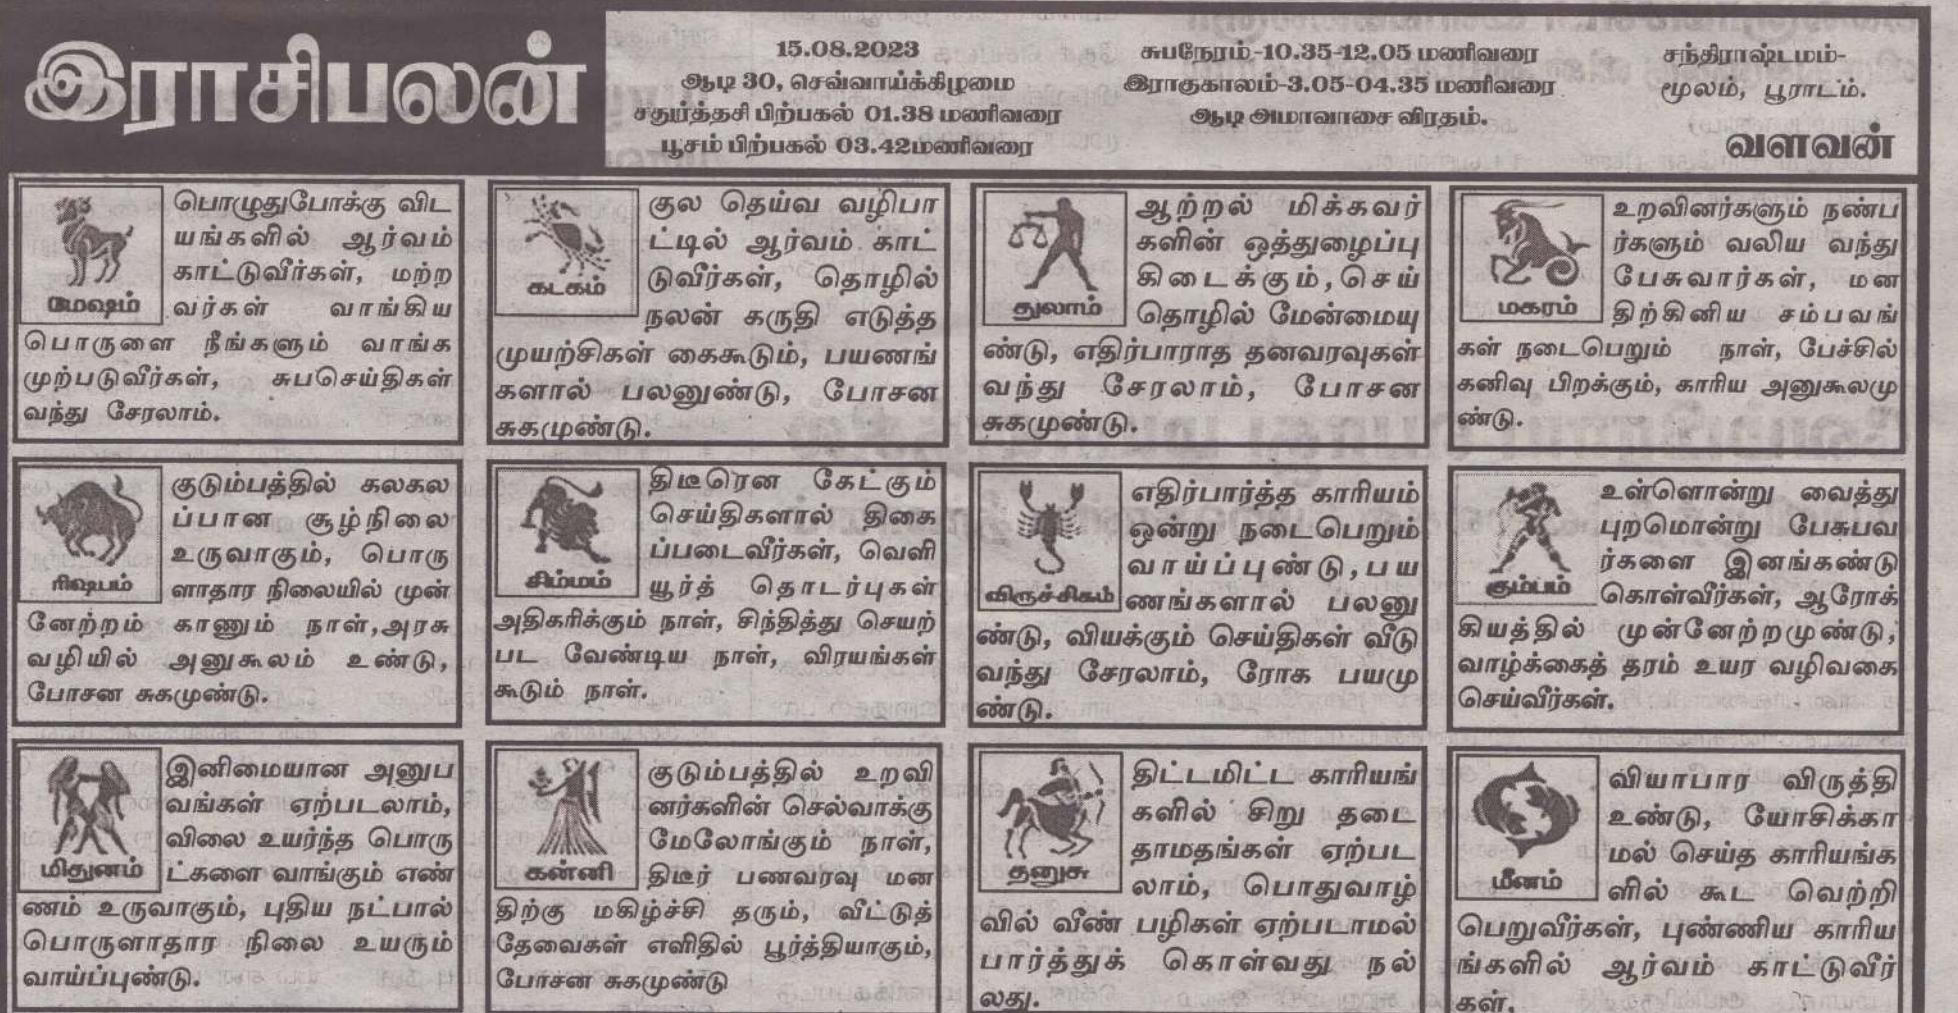 இராசிபலன்
15.08.2023
ஆடி 30, செவ்வாய்க்கிழமை
சதுர்த்தசி பிற்பகல் 01.38 மணிவரை
பூசம் பிற்பகல் 03.42மணிவரை
சுபநேரம்-10.35-12.05 மணிவரை
இராகுகாலம்-3.05-04.35 மணிவரை
ஆடி அமாவாசை விரதம்.
சந்திராஷ்டமம்-
மூலம், பூராடம்.
வளவன்
மேஷம்
பொழுதுபோக்கு விட
யங்களில் ஆர்வம்
காட்டுவீர்கள், மற்ற
வர்கள் வாங்கிய
பொருளை நீங்களும் வாங்க
முற்படுவீர்கள், சுபசெய்திகள்
வந்து சேரலாம்.
ரிஷபம்
குடும்பத்தில் கலகல
ப்பான சூழ்நிலை
உருவாகும், பொரு
ளாதார நிலையில் முன்
னேற்றம் காணும் நாள்,அரசு
வழியில் அனுகூலம் உண்டு,
போசன சுகமுண்டு.
மிதுனம்
இனிமையான அனுப
வங்கள் ஏற்படலாம்,
விலை உயர்ந்த பொரு
ட்களை வாங்கும் எண்
ணம் உருவாகும், புதிய நட்பால்
பொருளாதார நிலை உயரும்
வாய்ப்புண்டு.
கடகம்
குல தெய்வ வழிபா
ட்டில் ஆர்வம் காட்
டுவீர்கள், தொழில்
நலன் கருதி எடுத்த
முயற்சிகள் கைகூடும், பயணங்
களால் பலனுண்டு, போசன
சுகமுண்டு.
சிம்மம்
திடீரென கேட்கும்
செய்திகளால் திகை
ப்படைவீர்கள், வெளி
யூர்த் தொடர்புகள்
அதிகரிக்கும் நாள், சிந்தித்து செயற்
பட வேண்டிய நாள், விரயங்கள்
கூடும் நாள்.
கன்னி
குடும்பத்தில் உறவி
னர்களின் செல்வாக்கு
மேலோங்கும் நாள்,
திடீர் பணவரவு மன
திற்கு மகிழ்ச்சி தரும், வீட்டுத்
தேவைகள் எளிதில் பூர்த்தியாகும்,
போசன சுகமுண்டு
துலாம்
ஆற்றல் மிக்கவர்
களின் ஒத்துழைப்பு
கிடைக்கும்,செய்
தொழில் மேன்மையு
ண்டு, எதிர்பாராத தனவரவுகள்
வந்து சேரலாம், போசன
சுகமுண்டு.
விருச்சிகம்
எதிர்பார்த்த காரியம்
ஒன்று நடைபெறும்
வாய்ப்புண்டு,பய
ணங்களால் பலனு
ண்டு, வியக்கும் செய்திகள் வீடு
வந்து சேரலாம், ரோக பயமு
ண்டு.
தனுசு
திட்டமிட்ட காரியங்
களில் சிறு தடை
தாமதங்கள் ஏற்பட
லாம், பொதுவாழ்
வில் வீண் பழிகள் ஏற்படாமல்
பார்த்துக் கொள்வது நல்
லது.
மகரம்
உறவினர்களும் நண்ப
ர்களும் வலிய வந்து
பேசுவார்கள், மன
திற்கினிய சம்பவங்
கள் நடைபெறும் நாள், பேச்சில்
கனிவு பிறக்கும், காரிய அனுகூலமு
ண்டு.
கும்பம்
உள்ளொன்று வைத்து
புறமொன்று பேசுபவ
ர்களை இனங்கண்டு
கொள்வீர்கள், ஆரோக்
கியத்தில் முன்னேற்றமுண்டு,
வாழ்க்கைத் தரம் உயர வழிவகை
செய்வீர்கள்.
மீனம்
வியாபார விருத்தி
உண்டு, யோசிக்கா
மல் செய்த காரியங்க
ளில் கூட வெற்றி
பெறுவீர்கள், புண்ணிய காரிய
ங்களில் ஆர்வம் காட்டுவீர்
கள்.